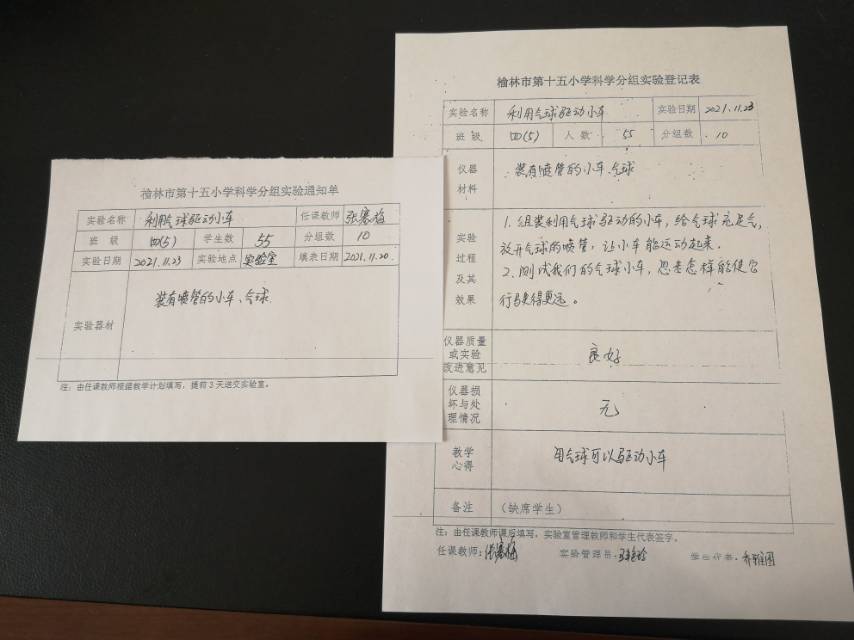 榆林市第十五小学科学分组实验通知单
实验名称 利用气球驱动小车 任课教师 张寒梅
班 级 四(5) 学生数 55 分组数 10
实验日期 2021.11.23 实验地点 实验室 填表日期 2021.11.20.
实验器材 装有喷管的小车、气球
注：由任课教师根据教学计划填写，提前3天送交实验室。
榆林市第十五小学科学分组实验登记表
实验名称 利用气球驱动小车 实验日期 2021.11.23
班 级 四(5) 人 数 55 分组数 10
仪器
材料
装有喷管的小车、气球
实验
过程
及其
效果
1.组装利用气球驱动的小车，给气球充足气，
放开气球的喷管，让小车能运动起来。
2.测试我们的气球小车，思考怎样能使它
行驶得更远。
仪器质量
或实验
改进意见
良好
仪器损
坏与处
理情况
无
教学
心得
用气球可以驱动小车
备注 （缺席学生）
注：由任课教师课后填写，实验室管理教师和学生代表签字。
任课教师： 实验管理员： 学生代表：